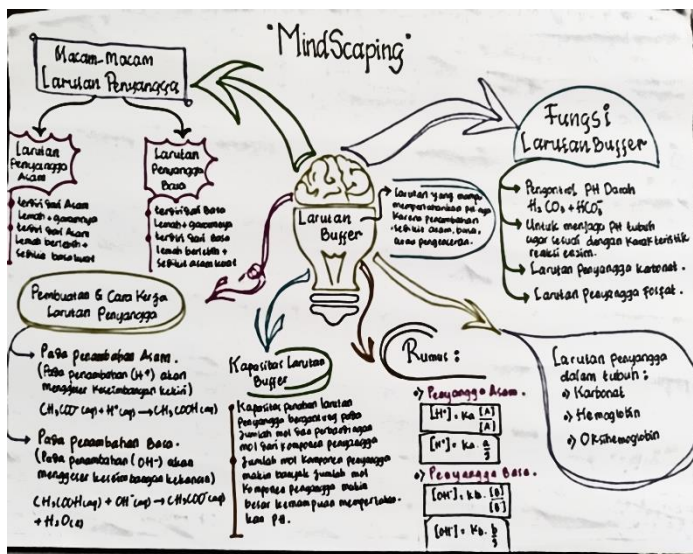 "MindScaping"
Macam-Macam
Larutan Penyangga
Larutan
Penyangga
Asam
terdiri dari Asam
Lemah + garamnya
terdiri dari Asam
Lemah berlebih +
sedikit basa kuat
Larutan
Penyangga
Basa
terdiri dari Basa
Lemah + garamnya
terdiri dari Basa
Lemah berlebih +
sedikit asam kuat
Larutan
Buffer
Larutan yang mampu
mempertahankan pH nya
karena penambahan
sedikit asam, basa,
atau pengenceran.
Fungsi
Larutan Buffer
Pengontrol PH Darah
H₂CO₃ + HCO₃⁻
Untuk menjaga PH tubuh
agar sesuai dengan karakteristik
reaksi enzim.
Larutan Penyangga Karbonat.
Larutan Penyangga Fosfat.
Pembuatan & Cara Kerja
Larutan Penyangga
Pada penambahan Asam.
(Pada penambahan (H⁺) akan
menggeser kesetimbangan kekiri)
CH₃COO⁻(aq) + H⁺(aq) → CH₃COOH(aq)
Pada penambahan Basa.
(Pada penambahan (OH⁻) akan
menggeser kesetimbangan kekanan)
CH₃COOH(aq) + OH⁻(aq) → CH₃COO⁻(aq)
+ H₂O(l)
Kapasitas Larutan
Buffer
Kapasitas penahan larutan
penyangga bergantung pada
Jumlah mol dan perbandingan
mol dari komponen penyangga
Jumlah mol komponen penyangga
makin banyak jumlah mol
komponen penyangga makin
besar kemampuan mempertahan-
kan PH.
Rumus :
Penyangga Asam.
[H⁺] = Ka [A]/[A]
[H⁺] = Ka. a/g
Penyangga Basa.
[OH⁻] = Kb. [B]/[B]
[OH⁻] = Kb. b/g
Larutan penyangga
dalam tubuh :
Karbonat
Hemoglobin
Oksihemoglobin